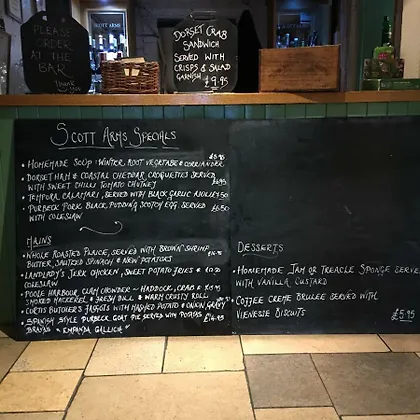 PLEASE
ORDER
AT THE
BAR
Thank
you
SCOTT ARMS
DORSET CRAB
SANDWICH
SERVED WITH
CRISPS & SALAD
GARNISH £9.95
SCOTT ARMS SPECIALS
• HOMEMADE SOUP: WINTER ROOT VEGETABLE & CORRIANDER £5.95
• DORSET HAM & COASTAL CHEDDAR CROQUETTES SERVED
WITH SWEET CHILLI TOMATO CHUTNEY
• TEMPURA CALAMARI, SERVED WITH BLACK GARLIC AIOLI
• PURBECK PORK, BLACK PUDDING SCOTCH EGG SERVED £6.50
WITH COLESLAW
MAINS
• WHOLE ROASTED PLAICE, SERVED WITH BROWN SHRIMP
BUTTER, SAUTEED SPINACH & NEW POTATOES
• LANDLADY'S JERK CHICKEN, SWEET POTATO FRIES &
COLESLAW
• POOLE HARBOUR CLAM CHOWDER - HADDOCK, CRAB &
SMOKED MACKEREL & FRESH DILL & WARM CRUSTY ROLL
• CURTIS BUTCHER'S FAGGOTS WITH MASHED POTATO & ONION GRAVY
• SPANISH STYLE PURBECK GOAT PIE SERVED WITH POTATAS £14.95
BRAVAS "EMPANDA GALLICIA"
DESSERTS
• HOMEMADE JAM OR TREACLE SPONGE SERVE
WITH VANILLA CUSTARD
• COFFEE CREME BRULEE SERVED WITH
VIENESSE BISCUITS £5.95